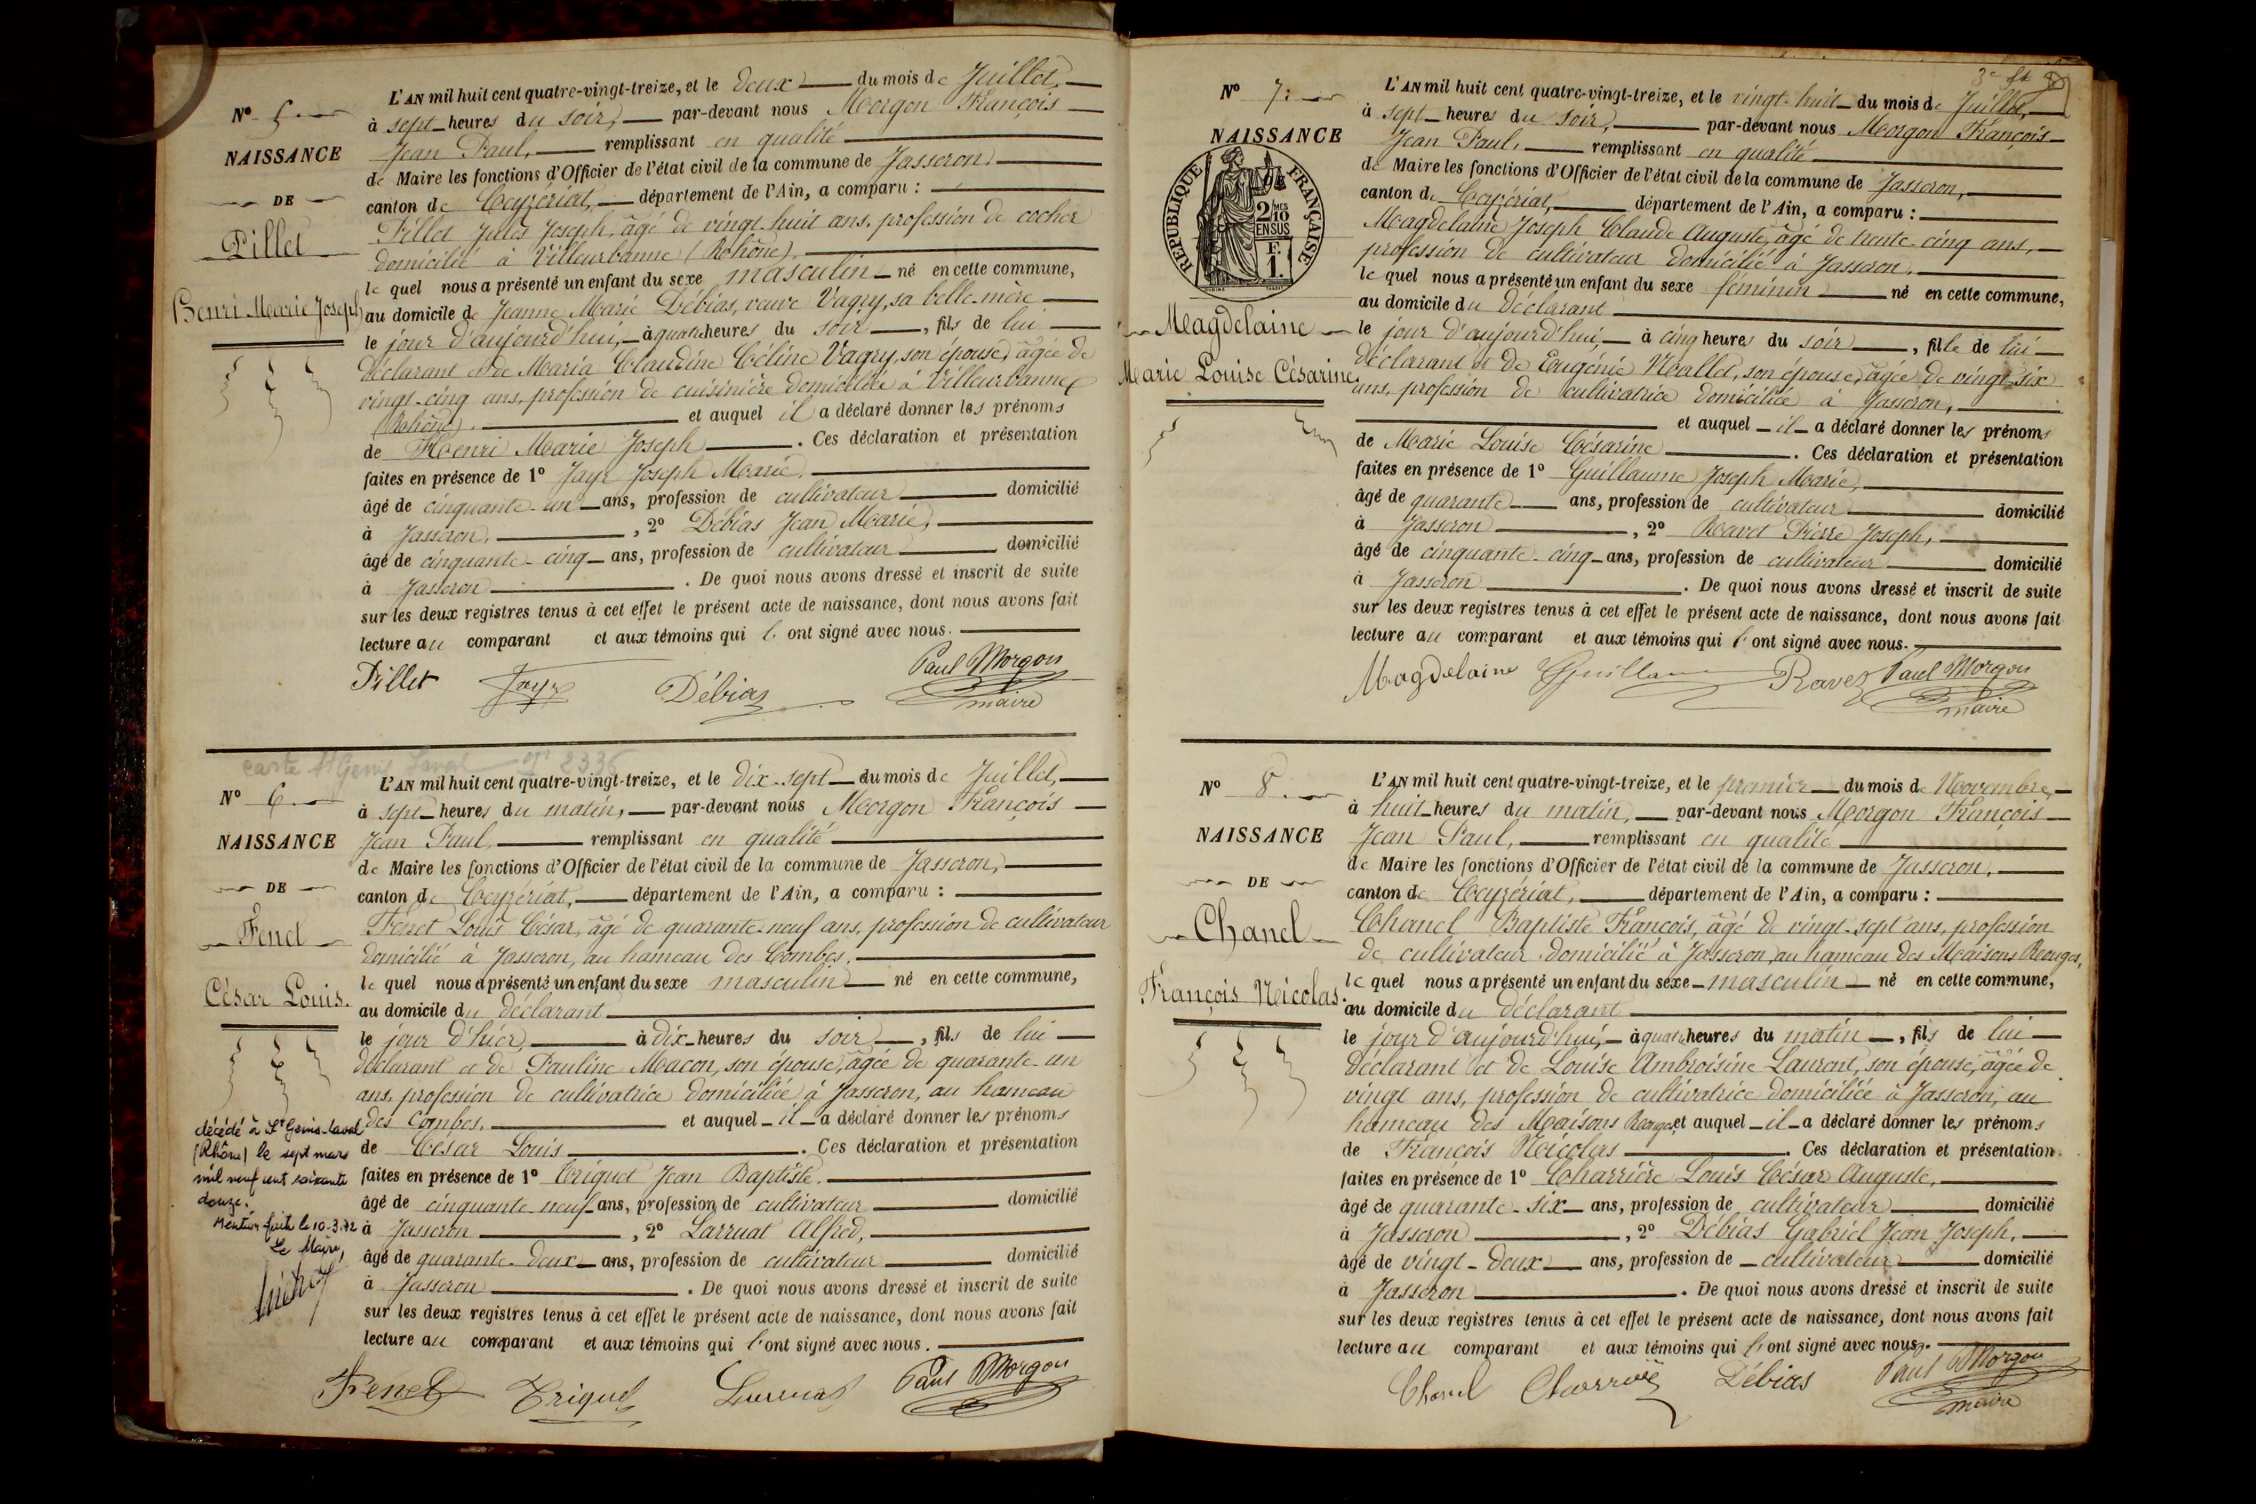 N° 5.
NAISSANCE
DE
Pillet
Henri Marie Joseph
L'AN mil huit cent quatre-vingt-treize, et le deux du mois de Juillet,
à sept heures du soir, par-devant nous Morgon François
Jean Paul, remplissant en qualité
de Maire les fonctions d'Officier de l'état civil de la commune de Jasseron,
canton de Ceyzériat, département de l'Ain, a comparu :
Pillet Jules Joseph, âgé de vingt-huit ans, profession de cocher
domicilié à Villeurbanne (Rhône).
le quel nous a présenté un enfant du sexe masculin né en cette commune,
au domicile de Jeanne Marie Débias, veuve Vagry, sa belle-mère
le jour d'aujourd'hui, à quatre heures du soir, fils de lui
déclarant et de Maria Claudine Céline Vagry, son épouse, âgée de
vingt-cinq ans, profession de cuisinière domiciliée à Villeurbanne
(Rhône). et auquel il a déclaré donner les prénoms
de Henri Marie Joseph. Ces déclaration et présentation
faites en présence de 1° Jayr Joseph Marie,
âgé de cinquante-un ans, profession de cultivateur domicilié
à Jasseron, 2° Débias Jean Marie,
âgé de cinquante-cinq ans, profession de cultivateur domicilié
à Jasseron. De quoi nous avons dressé et inscrit de suite
sur les deux registres tenus à cet effet le présent acte de naissance, dont nous avons fait
lecture au comparant et aux témoins qui l'ont signé avec nous.
Pillet Jayr Débias Paul Morgon
maire
carte St Genis Laval n° 2336
N° 6.
NAISSANCE
DE
Fenet
César Louis.
L'AN mil huit cent quatre-vingt-treize, et le dix-sept du mois de Juillet,
à sept heures du matin, par-devant nous Morgon François
Jean Paul, remplissant en qualité
de Maire les fonctions d'Officier de l'état civil de la commune de Jasseron,
canton de Ceyzériat, département de l'Ain, a comparu :
Fenet Louis César, âgé de quarante-neuf ans, profession de cultivateur
domicilié à Jasseron, au hameau des Combes.
le quel nous a présenté un enfant du sexe masculin né en cette commune,
au domicile du déclarant
le jour d'hier, à dix heures du soir, fils de lui
déclarant et de Pauline Macon, son épouse, âgée de quarante-un
ans, profession de cultivatrice domiciliée à Jasseron, au hameau
des Combes, et auquel il a déclaré donner les prénoms
de César Louis. Ces déclaration et présentation
faites en présence de 1° Triquet Jean Baptiste.
âgé de cinquante-neuf ans, profession de cultivateur domicilié
à Jasseron, 2° Larruat Alfred,
âgé de quarante-deux ans, profession de cultivateur domicilié
à Jasseron. De quoi nous avons dressé et inscrit de suite
sur les deux registres tenus à cet effet le présent acte de naissance, dont nous avons fait
lecture au comparant et aux témoins qui l'ont signé avec nous.
décédé à St Genis-Laval
(Rhône) le sept mars
mil neuf cent soixante
douze.
Mention faite le 10.3.72
Le Maire,
Fenet Triquet Larruat Paul Morgon
3e ft
N° 7.
NAISSANCE
DE
RÉPUBLIQUE FRANÇAISE
2/10
MES
EN SUS
F.
1.
Magdelaine
Marie Louise Césarine
L'AN mil huit cent quatre-vingt-treize, et le vingt-huit du mois de Juillet,
à sept heures du soir, par-devant nous Morgon François
Jean Paul, remplissant en qualité
de Maire les fonctions d'Officier de l'état civil de la commune de Jasseron,
canton de Ceyzériat, département de l'Ain, a comparu :
Magdelaine Joseph Claude Auguste, âgé de trente-cinq ans,
profession de cultivateur domicilié à Jasseron,
le quel nous a présenté un enfant du sexe féminin né en cette commune,
au domicile du déclarant
le jour d'aujourd'hui, à cinq heures du soir, fille de lui
déclarant et de Eugénie Nallet, son épouse, âgée de vingt-six
ans, profession de cultivatrice domiciliée à Jasseron,
et auquel il a déclaré donner les prénoms
de Marie Louise Césarine. Ces déclaration et présentation
faites en présence de 1° Guillaume Joseph Marie,
âgé de quarante ans, profession de cultivateur domicilié
à Jasseron, 2° Ravet Pierre Joseph,
âgé de cinquante-cinq ans, profession de cultivateur domicilié
à Jasseron. De quoi nous avons dressé et inscrit de suite
sur les deux registres tenus à cet effet le présent acte de naissance, dont nous avons fait
lecture au comparant et aux témoins qui l'ont signé avec nous.
Magdelaine Guillau Ravet Paul Morgon
maire
N° 8.
NAISSANCE
DE
Chanel
François Nicolas.
L'AN mil huit cent quatre-vingt-treize, et le premier du mois de Novembre,
à huit heures du matin, par-devant nous Morgon François
Jean Paul, remplissant en qualité
de Maire les fonctions d'Officier de l'état civil de la commune de Jasseron,
canton de Ceyzériat, département de l'Ain, a comparu :
Chanel Baptiste François, âgé de vingt-sept ans, profession
de cultivateur domicilié à Jasseron, au hameau des Maisons Rouges,
le quel nous a présenté un enfant du sexe masculin né en cette commune,
au domicile du déclarant
le jour d'aujourd'hui, à quatre heures du matin, fils de lui
déclarant et de Louise Ambroisine Laurent, son épouse, âgée de
vingt ans, profession de cultivatrice domiciliée à Jasseron, au
hameau des Maisons Rouges, et auquel il a déclaré donner les prénoms
de François Nicolas. Ces déclaration et présentation
faites en présence de 1° Charrière Louis César Auguste,
âgé de quarante-six ans, profession de cultivateur domicilié
à Jasseron, 2° Débias Gabriel Jean Joseph,
âgé de vingt-deux ans, profession de cultivateur domicilié
à Jasseron. De quoi nous avons dressé et inscrit de suite
sur les deux registres tenus à cet effet le présent acte de naissance, dont nous avons fait
lecture au comparant et aux témoins qui l'ont signé avec nous.
Chanel Charrière Débias Paul Morgon
maire